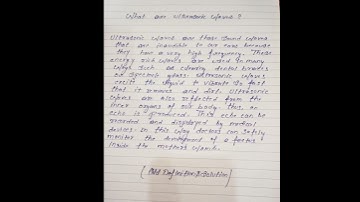 What are ultrasonic waves ?
Ultrasonic waves are those sound waves
that are inaudible to our ears because
they have a very high frequency. These
energy rich waves are used in many
ways such as cleaning dental braces
and specimen glass. Ultrasonic waves
excite the liquid to vibrate so fast
that it removes and dirt. Ultrasonic
waves are also reflected from the
inner organs of our body. Thus an
echo is produced. This echo can be
recorded and displayed by medical
devices. In this way doctors can safely
monitor the development of a foetus
inside the mothers womb.
(Add Definition & Solution)